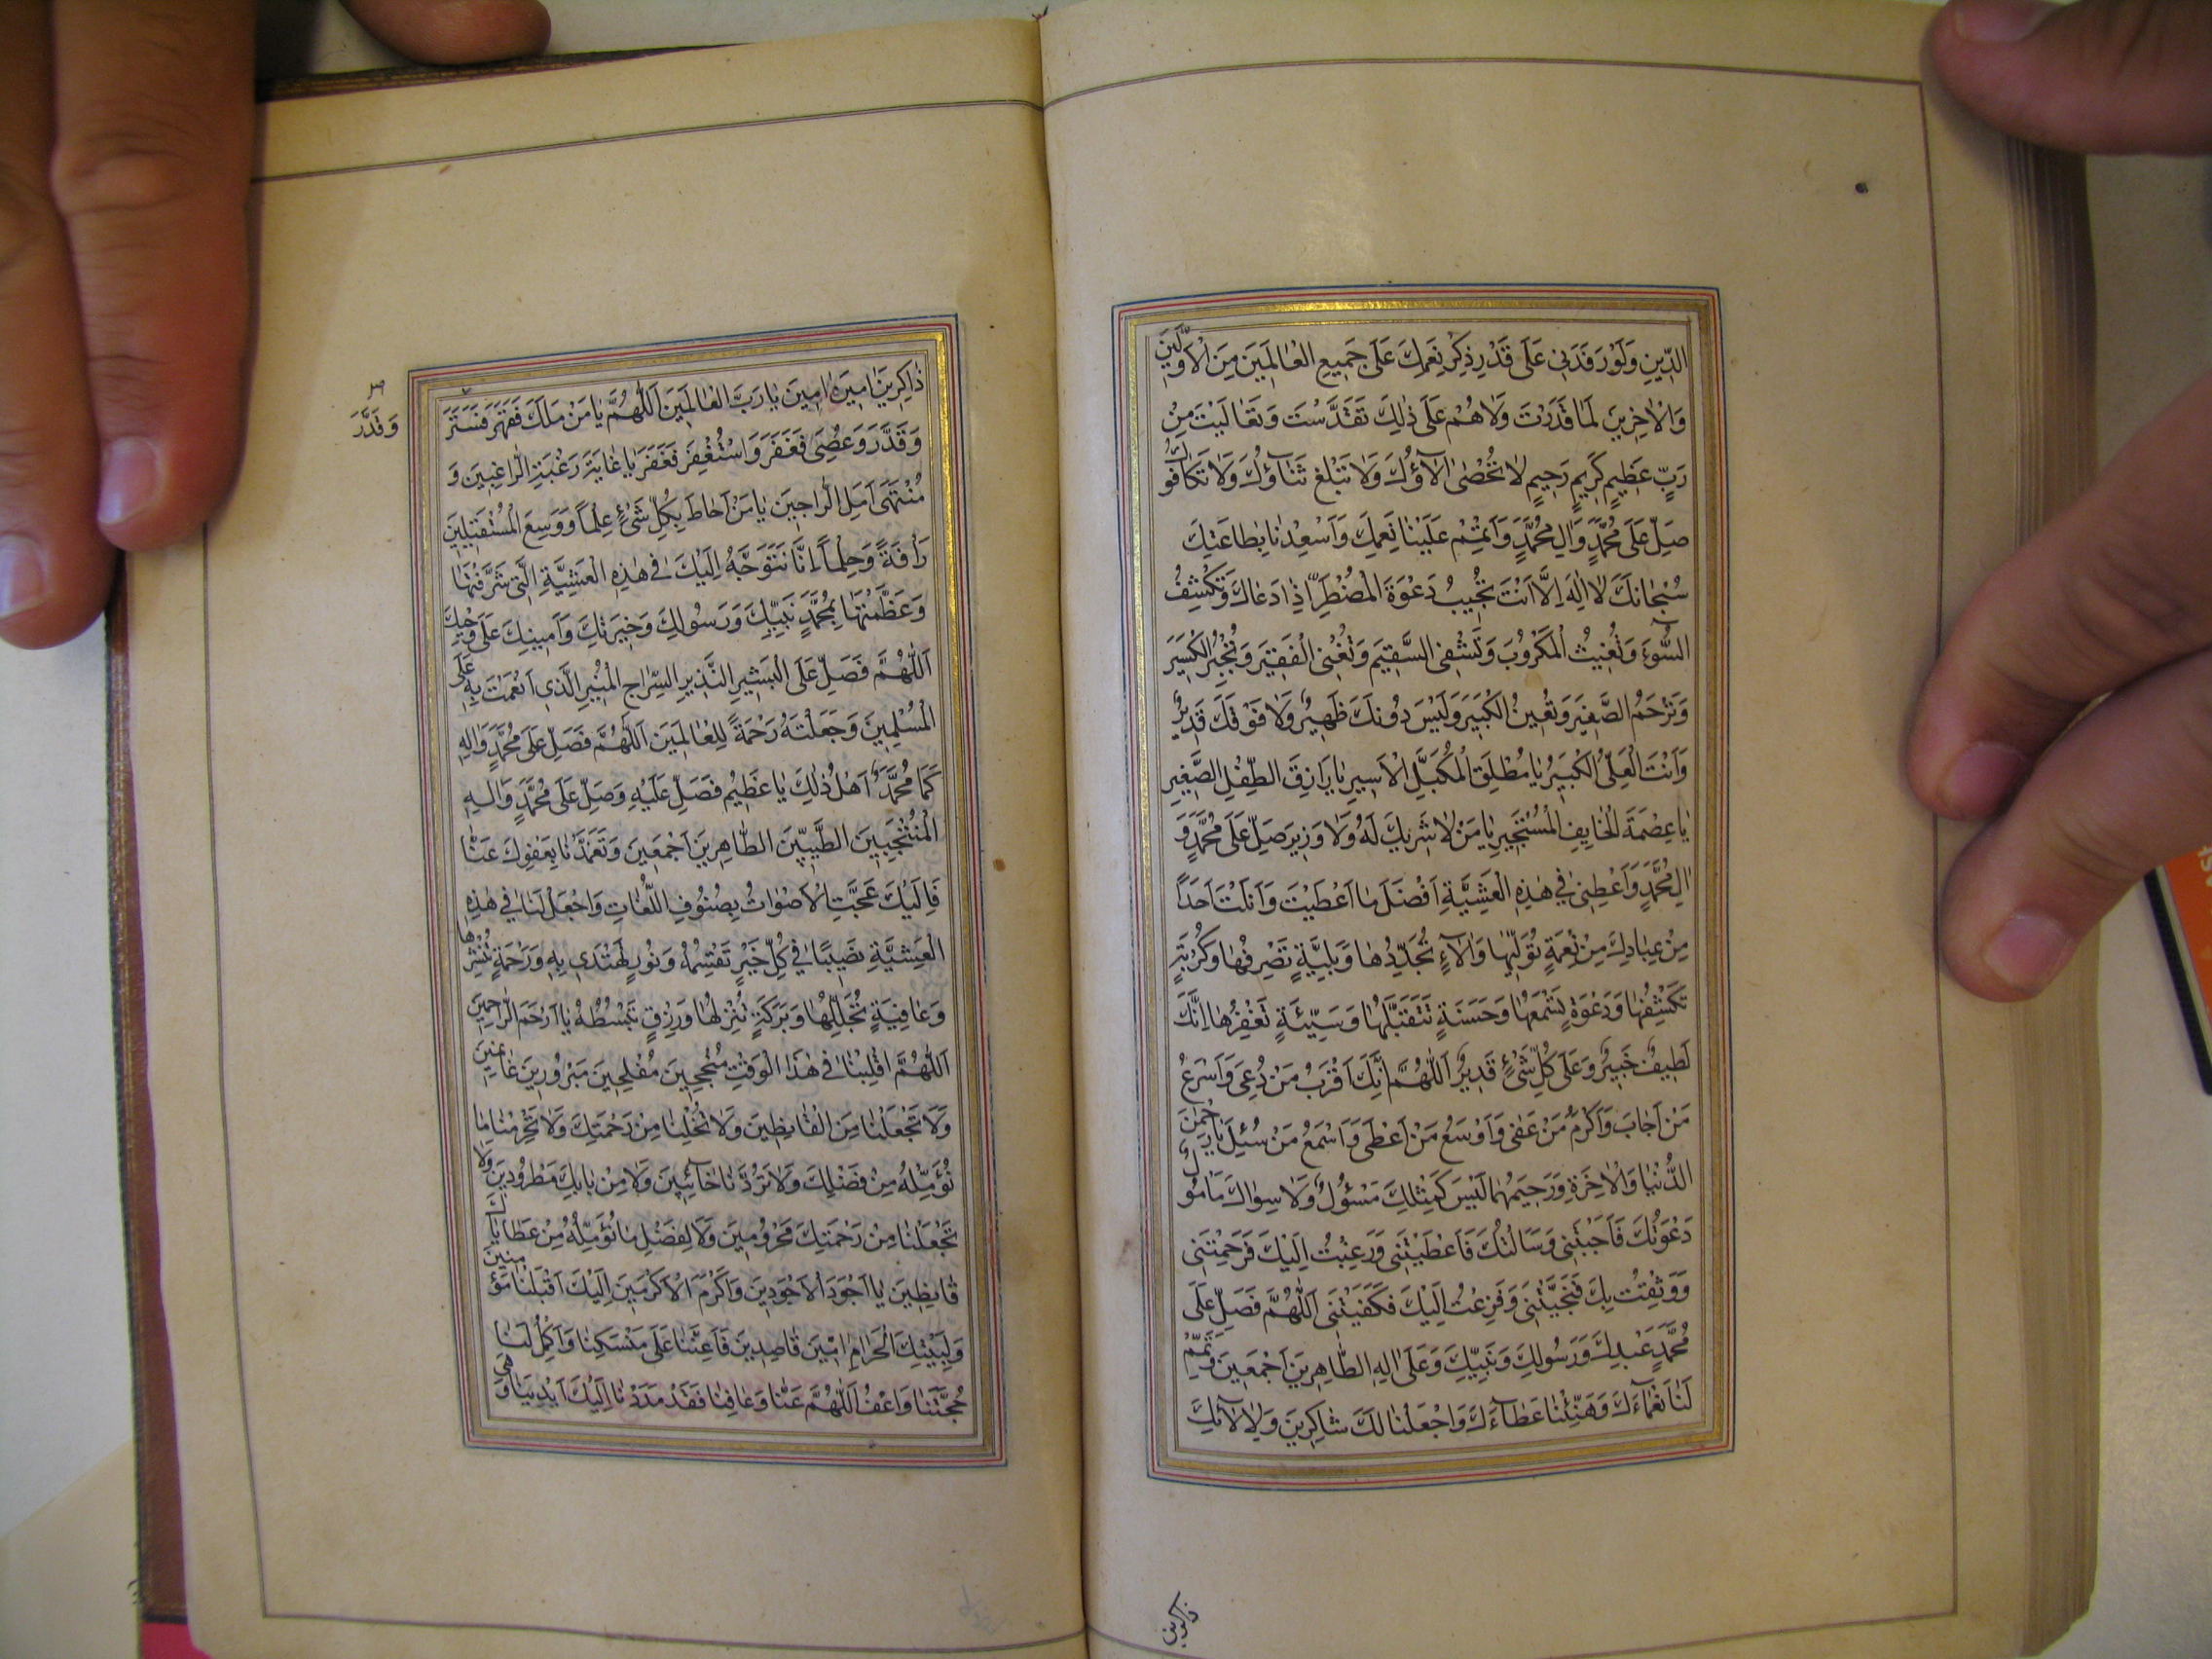 الدِّينِ وَلَوْ رَفَدَنِي عَلَى قَدْرِ ذِكْرِ نِعَمِكَ عَلَى جَمِيعِ الْعَالَمِينَ مِنَ الْأَوَّلِينَ
وَالْاخِرِينَ لَمَا قَدَرْتُ وَلَا هُمْ عَلَى ذٰلِكَ تَقَدَّسْتَ وَتَعَالَيْتَ مِنْ
رَبٍّ عَظِيمٍ كَرِيمٍ رَحِيمٍ لَا تُحْصَى الَآؤُكَ وَلَا تَبْلُغ ثَنَآؤُكَ وَلَا تَكَافُؤ
صَلِّ عَلَى مُحَمَّدٍ وَالِ مُحَمَّدٍ وَأَتْمِمْ عَلَيْنَا نِعَمِكَ وَأَسْعِدْنَا بِطَاعَتِكَ
سُبْحَانَكَ لَا اِلٰهَ اِلَّا اَنْتَ تُجِيبُ دَعْوَةَ الْمُضْطَرِّ اِذَا دَعَاكَ وَتَكْشِفُ
السُّوٓءَ وَتُغِيثُ الْمَكْرُوبَ وَتَشْفِي السَّقِيمَ وَتُغْنِي الْفَقِيرَ وَتُجْبِرُ الْكَسِيرَ
وَتَرْحَمُ الصَّغِيرَ وَتُعِينُ الْكَبِيرَ وَلَيْسَ دُونَكَ ظَهِيرٌ وَلَا فَوْقَكَ قَدِيرٌ
وَاَنْتَ الْعَلِيُّ الْكَبِيرُ يَا مُطْلِقَ الْمُكَبَّلِ الْاَسِيرِ يَا رَازِقَ الطِّفْلِ الصَّغِيرِ
يَا عِصْمَةَ الْخَايِفِ الْمُسْتَجِيرِ يَا مَنْ لَا شَرِيكَ لَهُ وَلَا وَزِيرَ صَلِّ عَلَى مُحَمَّدٍ وَ
الِ مُحَمَّدٍ وَاَعْطِنِي فِي هٰذِهِ الْعَشِيَّةِ اَفْضَلَ مَا اَعْطَيْتَ وَاَنَلْتَ اَحَدًا
مِنْ عِبَادِكَ مِنْ نِعْمَةٍ تُوَلِّيهَا وَالَآءٍ تُجَدِّدُهَا وَبَلِيَّةٍ تَصْرِفُهَا وَكُرْبَةٍ
تَكْشِفُهَا وَدَعْوَةٍ تَسْمَعُهَا وَحَسَنَةٍ تَتَقَبَّلُهَا وَسَيِّئَةٍ تَغْفِرُهَا اِنَّكَ
لَطِيفٌ خَبِيرٌ وَعَلَى كُلِّ شَيْءٍ قَدِيرٌ اَللّٰهُمَّ اِنَّكَ اَقْرَبُ مَنْ دُعِيَ وَاَسْرَعُ
مَنْ اَجَابَ وَاَكْرَمُ مَنْ عَفٰى وَاَوْسَعُ مَنْ اَعْطٰى وَاَسْمَعُ مَنْ سُئِلَ يَا رَحْمٰنَ
الدُّنْيَا وَالْاخِرَةِ وَرَحِيمَهُمَا لَيْسَ كَمِثْلِكَ مَسْؤُلٌ وَلَا سِوَاكَ مَامُولٌ
دَعَوْتُكَ فَاَجَبْتَنِي وَسَاَلْتُكَ فَاَعْطَيْتَنِي وَرَغِبْتُ اِلَيْكَ فَرَحِمْتَنِي
وَوَثِقْتُ بِكَ فَنَجَّيْتَنِي وَفَزِعْتُ اِلَيْكَ فَكَفَيْتَنِي اَللّٰهُمَّ فَصَلِّ عَلَى
مُحَمَّدٍ عَبْدِكَ وَرَسُولِكَ وَنَبِيِّكَ وَعَلَى الِهِ الطَّاهِرِينَ اَجْمَعِينَ وَتَمِّمْ
لَنَا نَعْمَاءَكَ وَهَنِّئْنَا عَطَآءَكَ وَاجْعَلْنَا لَكَ شَاكِرِينَ وَلِالَآئِكَ
ذاكرين
ذَاكِرِينَ امِينَ امِينَ يَا رَبَّ الْعَالَمِينَ اَللّٰهُمَّ يَا مَنْ مَلَكَ فَقَهَرَ فَسَتَرَ
وَقَدَّرَ
وَقَدَّرَ وَعُصِيَ فَغَفَرَ وَاسْتُغْفِرَ فَغَفَرَ يَا غَايَةَ رَغْبَةِ الرَّاغِبِينَ وَ
مُنْتَهَى اَمَلِ الرَّاجِينَ يَا مَنْ اَحَاطَ بِكُلِّ شَيْءٍ عِلْمًا وَوَسِعَ الْمُسْتَقِيلِينَ
رَاْفَةً وَحِلْمًا اِنَّا نَتَوَجَّهُ اِلَيْكَ فِي هٰذِهِ الْعَشِيَّةِ الَّتِي شَرَّفْتَهَا
وَعَظَّمْتَهَا بِمُحَمَّدٍ نَبِيِّكَ وَرَسُولِكَ وَخِيَرَتِكَ وَاَمِينِكَ عَلَى وَحْيِكَ
اَللّٰهُمَّ فَصَلِّ عَلَى الْبَشِيرِ النَّذِيرِ السِّرَاجِ الْمُنِيرِ الَّذِي اَنْعَمْتَ بِهِ عَلَى
الْمُسْلِمِينَ وَجَعَلْتَهُ رَحْمَةً لِلْعَالَمِينَ اَللّٰهُمَّ فَصَلِّ عَلَى مُحَمَّدٍ وَالِهِ
كَمَا مُحَمَّدٌ اَهْلُ ذٰلِكَ يَا عَظِيمُ فَصَلِّ عَلَيْهِ وَصَلِّ عَلَى مُحَمَّدٍ وَالِهِ
الْمُنْتَجَبِينَ الطَّيِّبِينَ الطَّاهِرِينَ اَجْمَعِينَ وَتَغَمَّدْنَا بِعَفْوِكَ عَنَّا
فَاِلَيْكَ عَجَّتِ الْاَصْوَاتُ بِصُنُوفِ اللُّغَاتِ وَاجْعَلْ لَنَا فِي هٰذِهِ
الْعَشِيَّةِ نَصِيبًا فِي كُلِّ خَيْرٍ تَقْسِمُهُ وَنُورٍ تَهْتَدِي بِهِ وَرَحْمَةٍ تَنْشُرُهَا
وَعَافِيَةٍ تُجَلِّلُهَا وَبَرَكَةٍ تُنْزِلُهَا وَرِزْقٍ تَبْسُطُهُ يَا اَرْحَمَ الرَّاحِمِينَ
اَللّٰهُمَّ اقْلِبْنَا فِي هٰذَا الْوَقْتِ مُنْجِحِينَ مُفْلِحِينَ مَبْرُورِينَ غَانِمِينَ
وَلَا تَجْعَلْنَا مِنَ الْقَانِطِينَ وَلَا تُخْلِنَا مِنْ رَحْمَتِكَ وَلَا تَحْرِمْنَا مَا
نُؤَمِّلُهُ مِنْ فَضْلِكَ وَلَا تَرُدَّنَا خَآئِبِينَ وَلَا مِنْ بَابِكَ مَطْرُودِينَ وَلَا
تَجْعَلْنَا مِنْ رَحْمَتِكَ مَحْرُومِينَ وَلَا لِفَضْلِ مَا نُؤَمِّلُهُ مِنْ عَطَايَاكَ
قَانِطِينَ يَا اَجْوَدَ الْاَجْوَدِينَ وَاَكْرَمَ الْاَكْرَمِينَ اِلَيْكَ اَقْبَلْنَا مُؤمِنِينَ
وَلِبَيْتِكَ الْحَرَامِ امِّينَ قَاصِدِينَ فَاَعِنَّا عَلَى مَنْسَكِنَا وَاَكْمِلْ لَنَا
حُجَّتَنَا وَاعْفُ اَللّٰهُمَّ عَنَّا وَعَافِنَا فَقَدْ مَدَدْنَا اِلَيْكَ اَيْدِيَنَا وَهِيَ